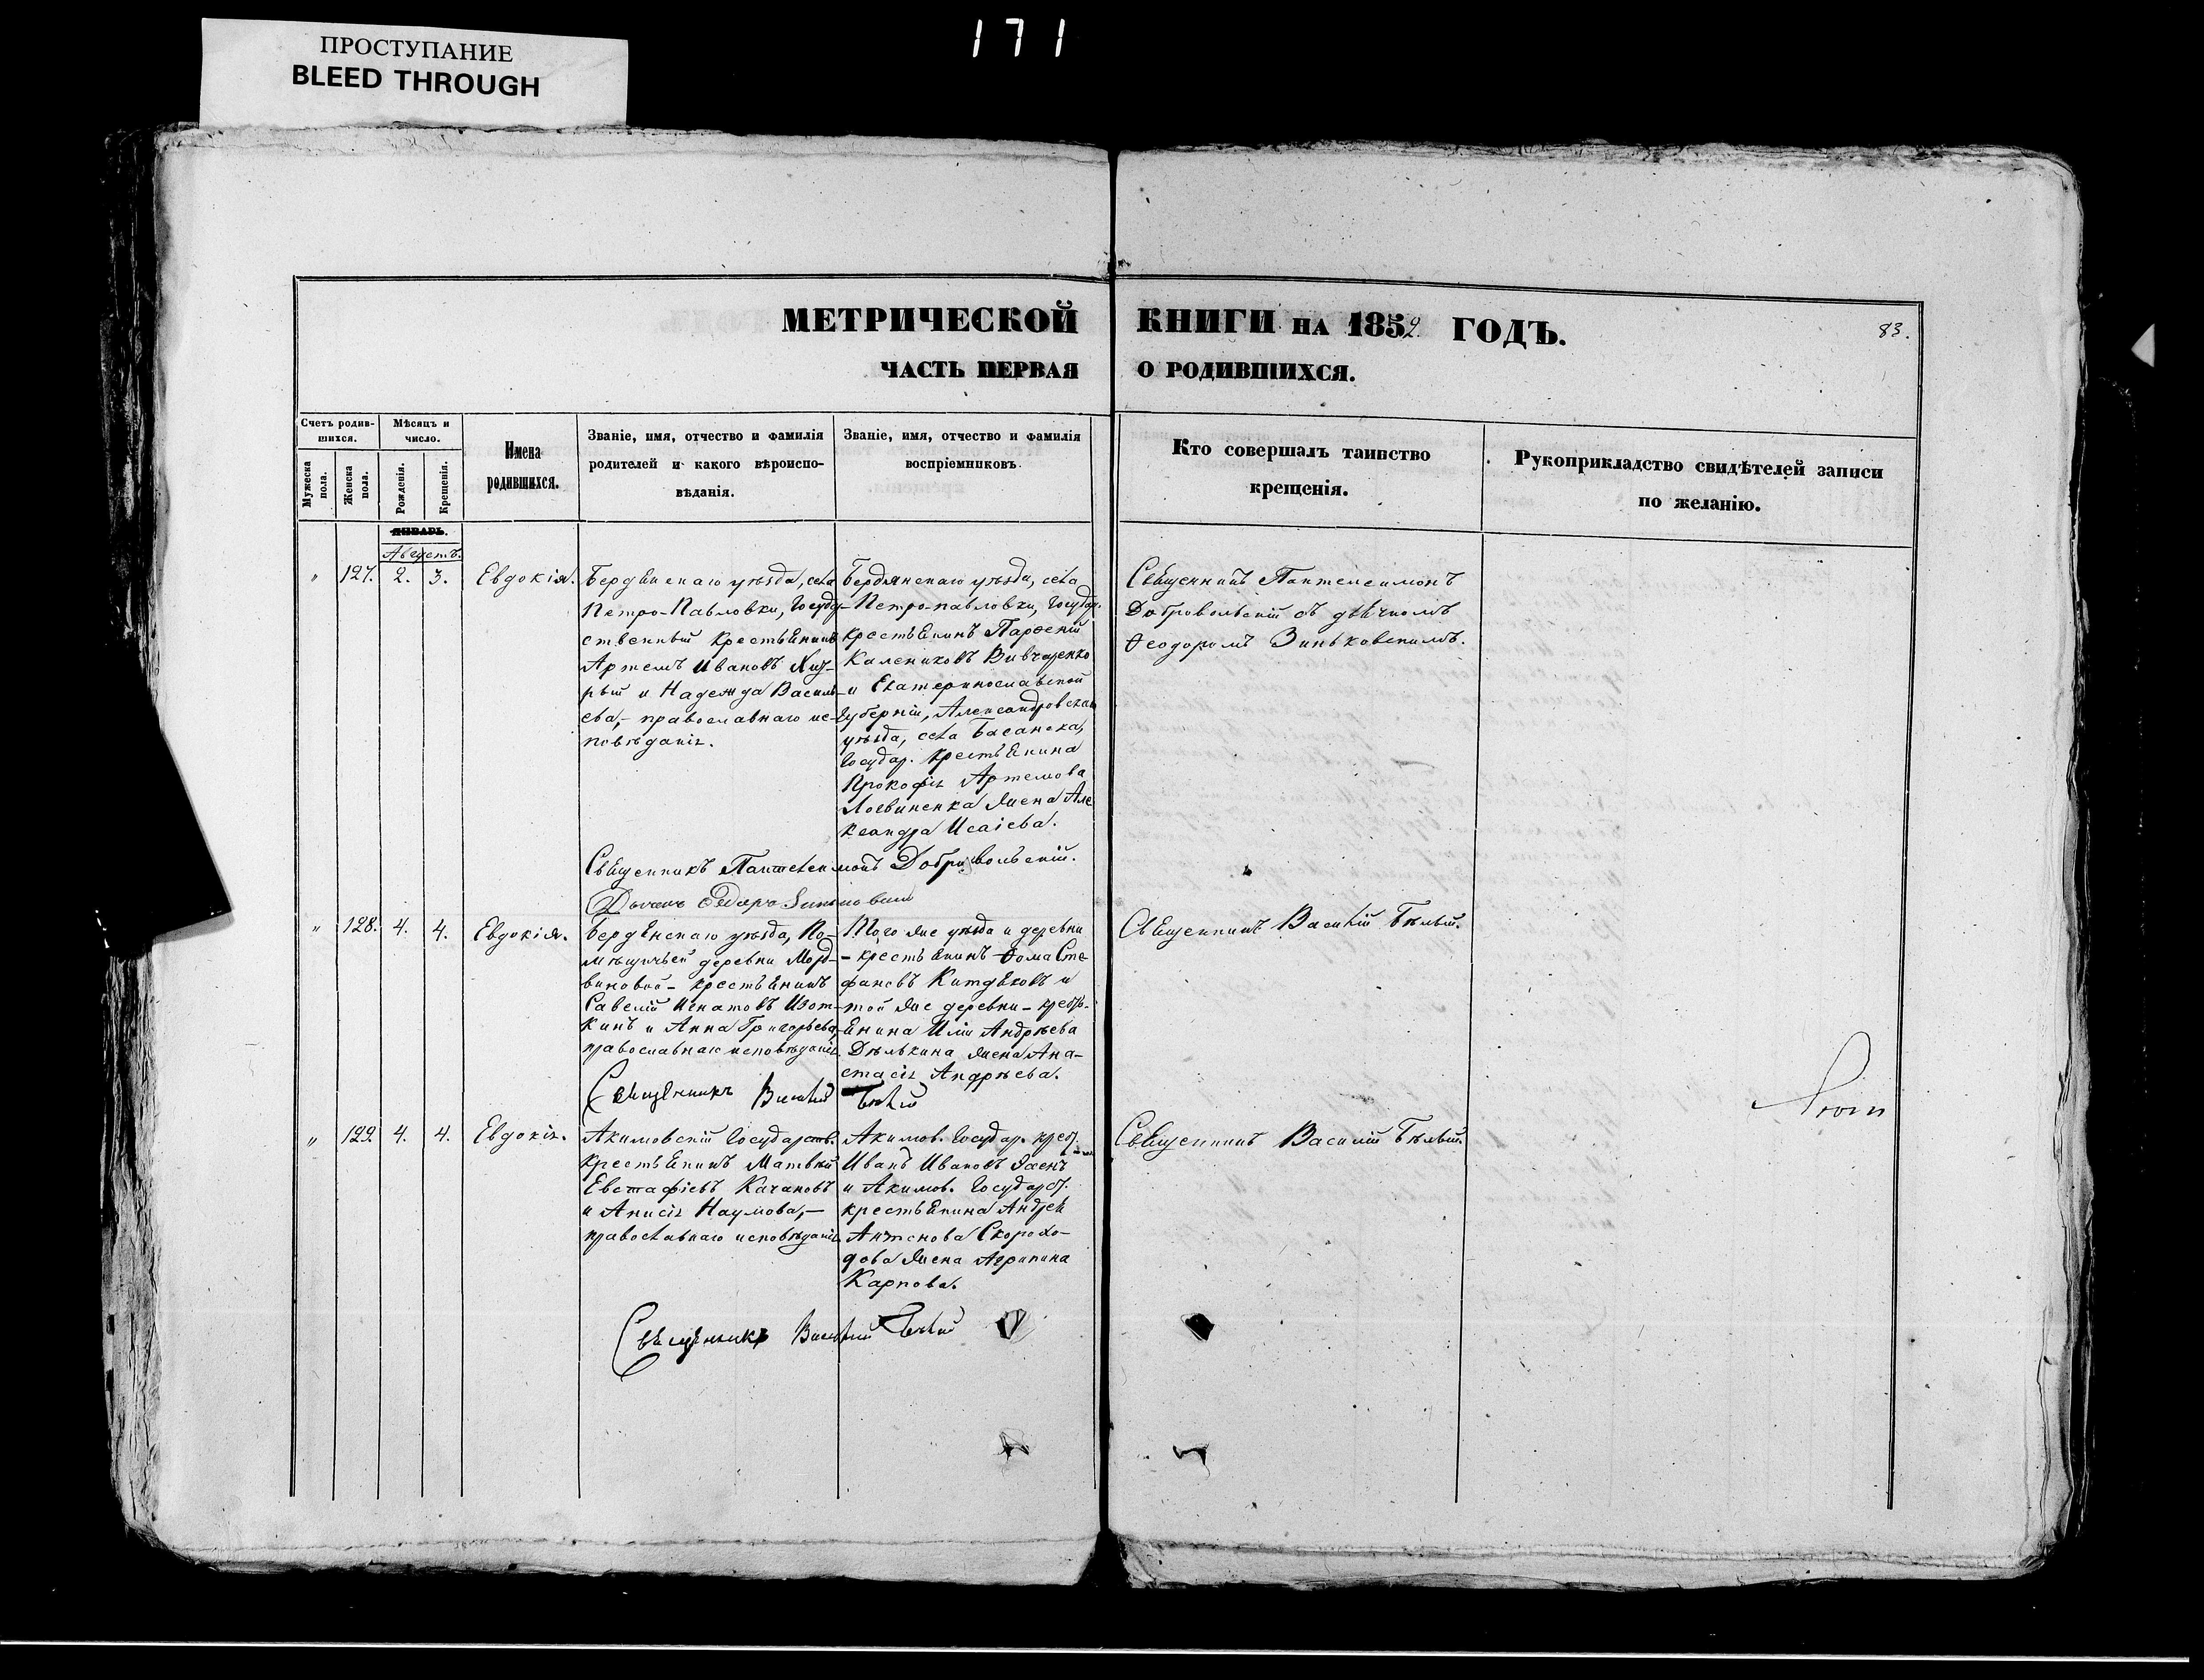 171
ПРОСТУПАНИЕ
BLEED THROUGH
МЕТРИЧЕСКОЙ КНИГИ НА 1852 ГОДЪ.
83.
ЧАСТЬ ПЕРВАЯ О РОДИВШИХСЯ.
Счетъ родив-
шихся.
Мужеска пола.
Женска пола.
Мѣсяцъ и
число.
Рожденія.
Крещенія.
Имена
родившихся.
Званіе, имя, отчество и фамилія
родителей и какого вѣроиспо-
вѣданія.
Званіе, имя, отчество и фамилія
воспріемниковъ.
Кто совершалъ таинство
крещенія.
Рукоприкладство свидѣтелей записи
по желанію.
ЯНВАРЬ.
Августъ.
" 127. 2. 3. Евдокія.
Бердянскаго уѣзда, села
Петро-Павловки, Госуда-
ственный крестьянинъ
Артемъ Ивановъ
и Надежда Василь-
ева,- православнаго ис-
повѣданія.
Бердянскаго уѣзда, села
Петро-павловки, Государ.
крестьянинъ Парѳеній
Калениковъ Вивчаренко
и Екатеринославской
Губерніи, Александровскаго
уѣзда, села Басанска,
Государ. крестьянина
Прокофія Артемова
Логвиненка жена Але
ксандра Исаіева.
Священникъ Пантелеимонъ
Добровольскій съ дьячкомъ
Ѳеодоромъ Зиньковскимъ.
Священникъ Пантелеимонъ Добровольскій.
Дьячекъ Ѳедоръ Зиньковскій
" 128. 4. 4. Евдокія.
Бердянскаго уѣзда, По-
мѣщичьей деревниМорд-
виновой - крестьянинъ
Савелій Игнатовъ Изот-
кинъ и Анна Григорьева
православнаго исповѣданія.
Того же уѣзда и деревни
- крестьянинъ Ѳома Сте-
фановъ Китдяковъ и
той же деревни - кресть-
янина Иліи Андрѣева
Дѣлькина жена Ана-
стасія Андрѣева.
Священникъ Василій Бѣлый.
Священникъ Василій Бѣлый
" 129. 4. 4. Евдокія.
Акимовскій Государств.
крестьянинъ Матвѣй
Евстафіевъ Качановъ
и Анисія Наумова,-
православнаго исповѣданія.
Акимов. Государ. крест.
Иванъ Ивановъ
и Акимов. Государст.
крестьянина Андрея
Антонова Скорохо-
дова жена Агрипина
Карпова.
Священникъ Василій Бѣлый.
Священникъ Василій Бѣлый